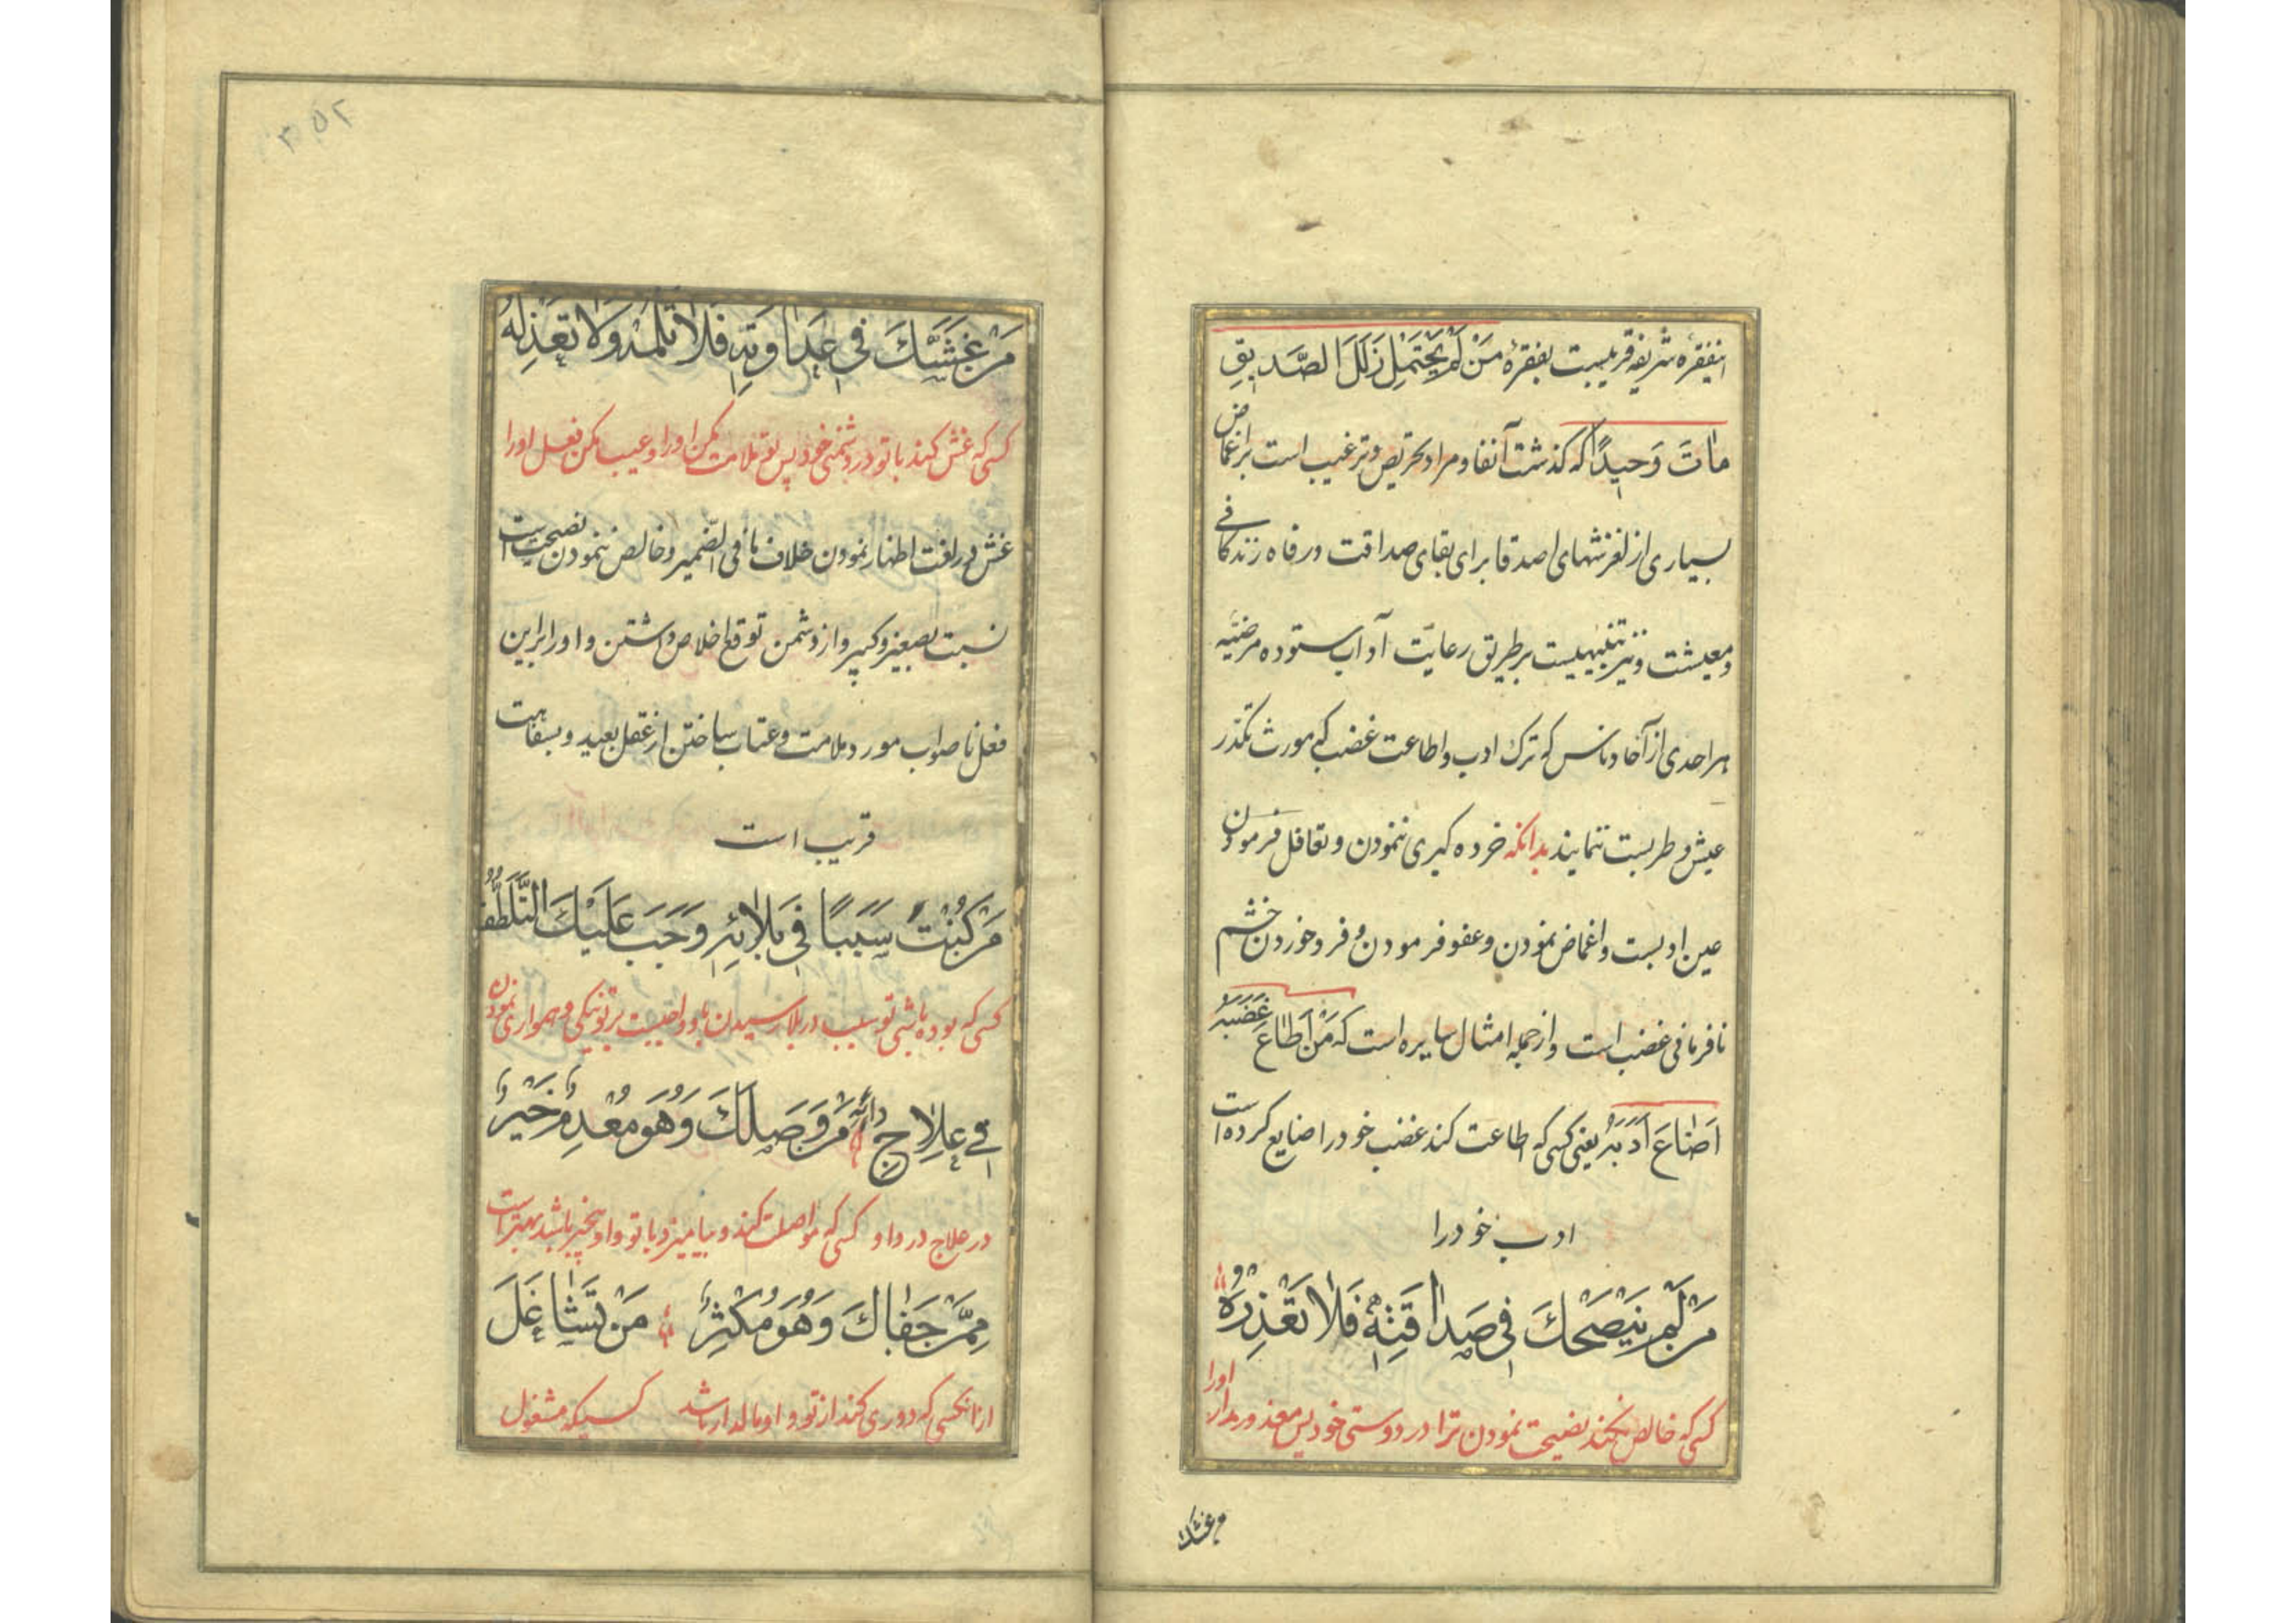 اینفقرهٔ شریفه قریبست بفقرهٔ مَنْ لَمْ یَحْتَمِلْ زَلَلَ الصَّدیقِ
ماتَ وَحیدًا که گذشت آنفا و مراد تحریص و ترغیب است بر اغماض
بسیاری از لغزشهای اصدقا برای بقای صداقت و رفاه زندگانی
و معیشت و نیز تنبیهیست بر طریق رعایت آداب ستوده مرضیّه
هر احدی از آحاد ناس که ترک ادب و اطاعت غضب که مورث تکدّر
عیش و طربست ننمایند بدانکه خرده کیری ننمودن و تغافل فرمودن
عین ادبست و اغماض نمودن و عفو فرمودن و فرو خوردن خشم
نافرمانی غضب است و از جمله امثال سایره است که مَنْ اَطاعَ غَضَبَهُ
اَضاعَ اَدَبَهُ یعنی کسی که اطاعت کند غضب خود را ضایع کرده است
ادب خود را
مَنْ لَمْ یَنْصَحْكَ فی صَداقَتِهِ فَلا تَعْذِرْهُ
کسی که خالص نکند نصیحت نمودن ترا در دوستی خود پس معذور مدار اورا
مَنْ غَشَّكَ
۳۵۲
مَنْ غَشَّكَ فی عَداوَتِهِ فَلا تَلُمْهُ وَلا تَعْذِلْهُ
کسی که غش کند با تو در دشمنی خود پس تو ملامت مکن او را و عیب مکن فعل اورا
غش در لغت اظهار نمودن خلاف ما فی الضّمیر و خالص ننمودن نصیحت است
نسبت بصغیر و کبیر و از دشمن توقع اخلاص داشتن و اورا براین
فعل ناصواب مورد ملامت و عتاب ساختن از عقل بعید و بسفاهت
قریب است
مَنْ کُنْتَ سَبَبًا فی بَلائِهِ وَجَبَ عَلَیْكَ التَّلَطُّفُ
کسی که بوده باشی تو سبب در بلا رسیدن باو واجبست بر تو نیکی و همواری نمودن
فی عِلاجِ دائِهِ مَنْ وَصَلَكَ وَهُوَ مُعْدِمٌ خَیْرٌ
در علاج درد او کسی که مواصلت کند و بیامیزد با تو و او بیچیز باشد بهتر است
مِمَّنْ جَفاكَ وَهُوَ مُکْثِرٌ مَنْ تَشاغَلَ
از آنکسی که دوری کند از تو و او مالدار باشد کسیکه مشغول